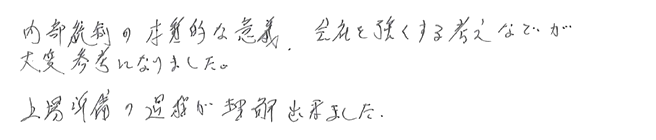 内部統制の本質的な意義、会社を強くする考えなどが
大変参考になりました。
上場準備の過程が理解出来ました.